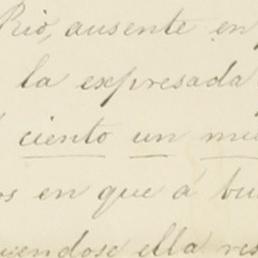 Rio, ausente en
la expresada
ciento un
os en que á bu
uiendose ella res